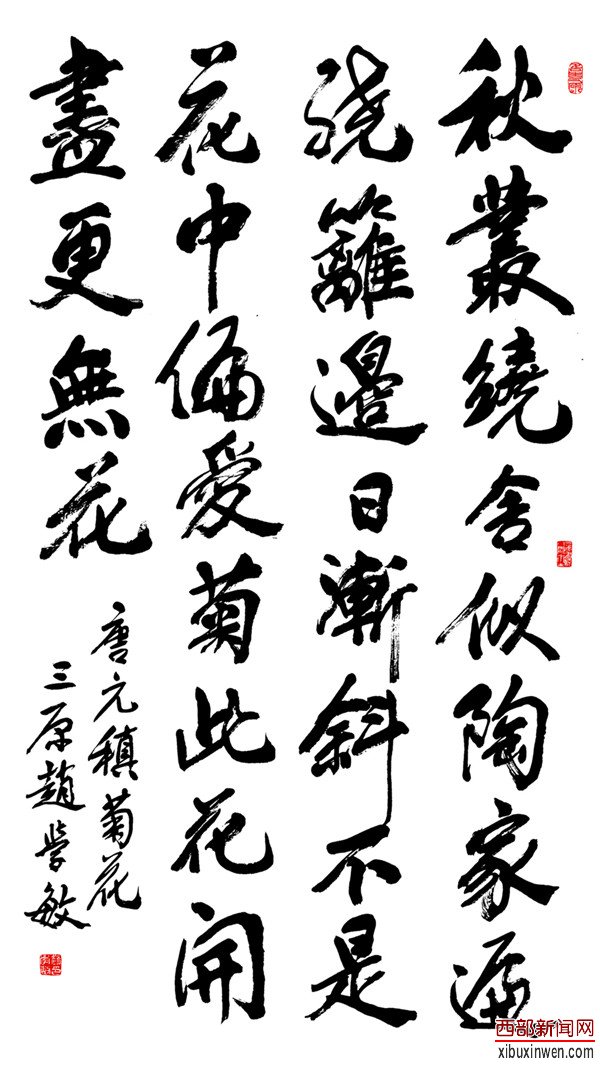 秋叢繞舍似陶家遍
繞籬邊日漸斜不是
花中偏愛菊此花開
盡更無花
唐元稹菊花
三原趙學敏
西部新闻网
xibuxinwen.com